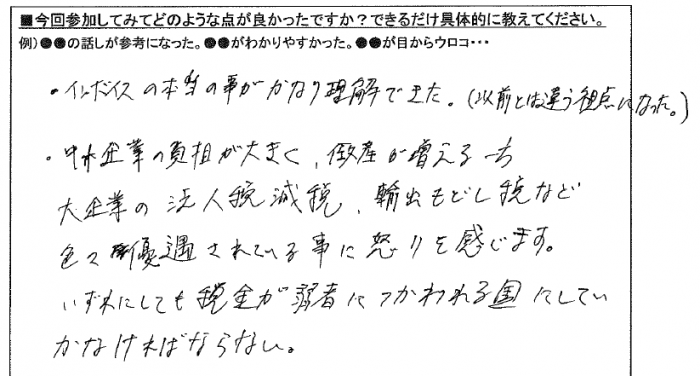 ■今回参加してみてどのような点が良かったですか？できるだけ具体的に教えてください。
例）●●の話しが参考になった。●●がわかりやすかった。●●が目からウロコ・・・
・インボイスの本当の事がかなり理解できた。（以前とは違う視点になった。）
・中小企業の負担が大きく、倒産が増える一方
大企業の法人税減税、輸出もどし税など
色々優遇されている事に怒りを感じます。
いずれにしても税金が弱者につかわれる国にしてい
かなければならない。